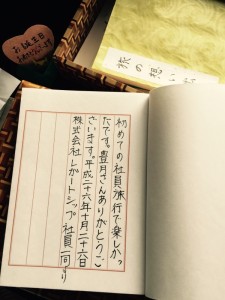 お誕生日
旅の想い
初めての社員旅行で楽しかっ
たです。豊月さんありがとうご
ざいます。平成二十六年十月二十六日
株式会社レガートシップ 社員一同より